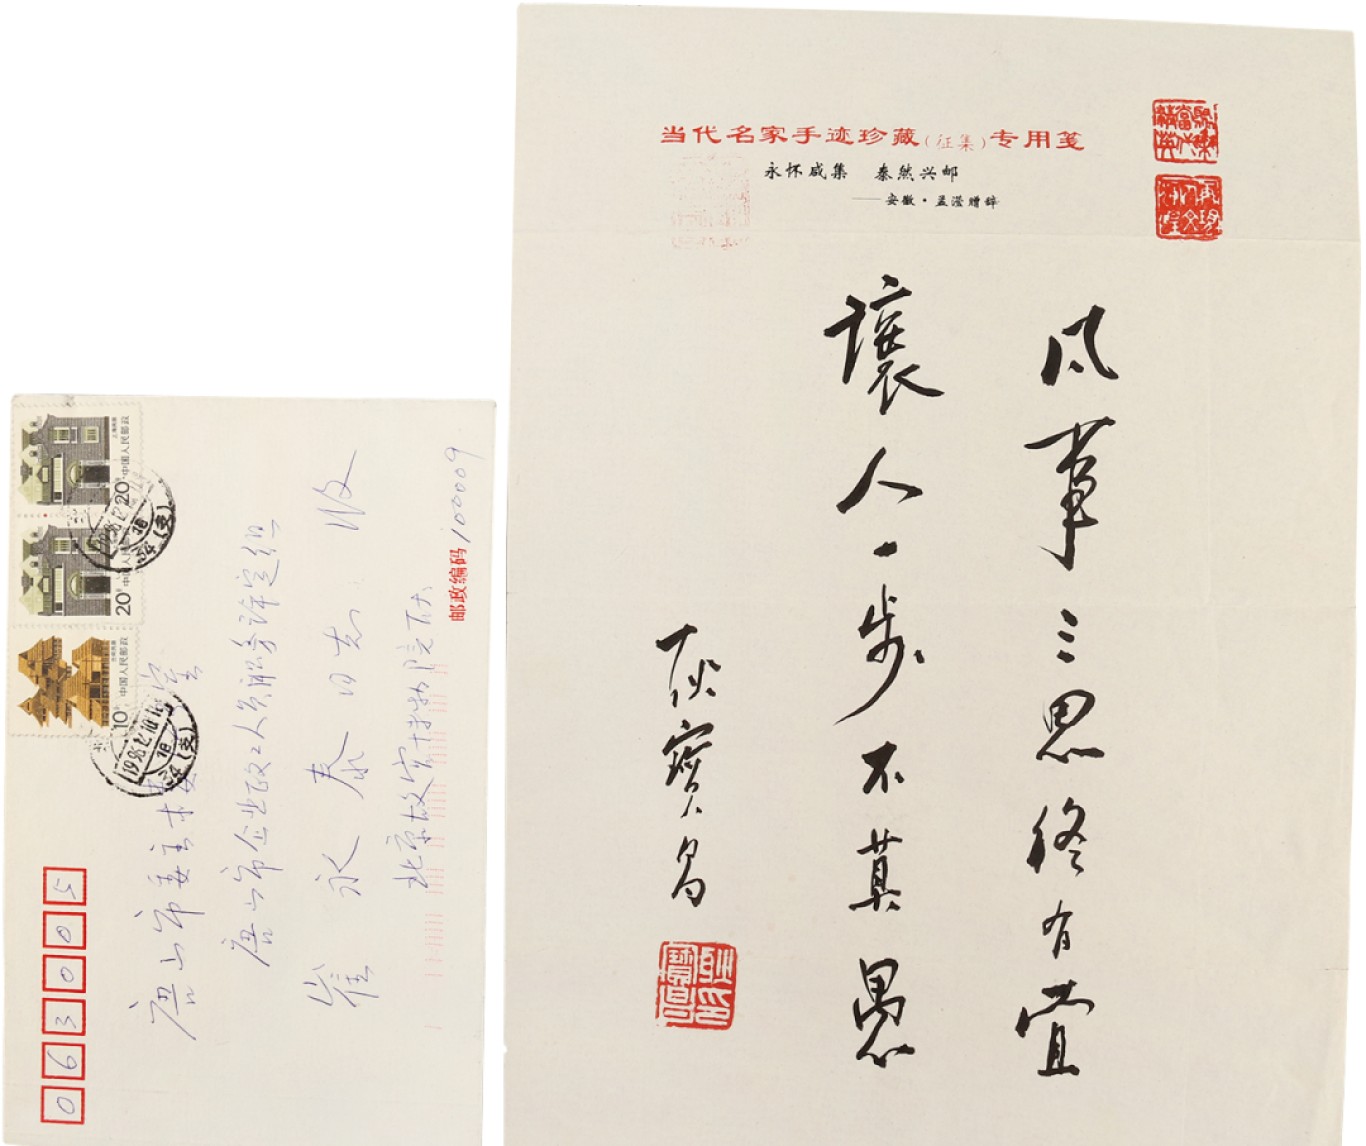 当代名家手迹珍藏(征集)专用笺
永怀咸集 泰然兴邮
——安徽·孟滢赠辞
凡事三思终有宜
讓人一步不莫愚
耿寶昌
中国人民邮政
20
中国人民邮政
20
中国人民邮政
10
1996.12.10.18
063005
唐山市委主楼
唐山市企业政工人员职务评定组
崔永泰同志 收
北京故宫博物院
邮政编码 100009